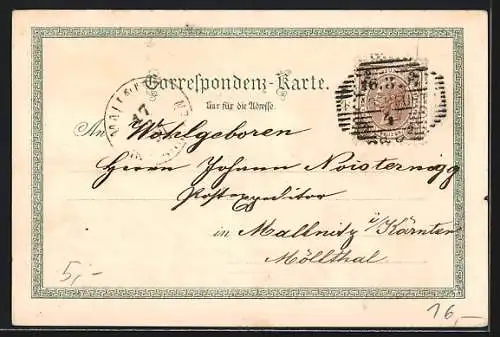 Correspondenz-Karte.
Nur für die Adresse.
An Wohlgeboren
Herrn Johann Noisternigg
Postexpeditor
in Mallnitz i/Kärnten
Möllthal
5,-
16,-